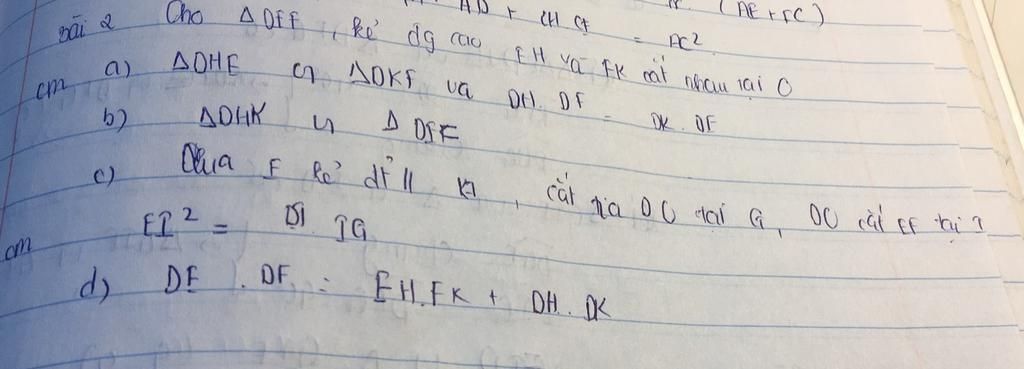 AD + CH CF = AC² (AE + FC)
bài 2 Cho △DEF, kẻ đg cao EH và FK cắt nhau tại O
cm a) △DHE ᔕ △DKF và DH. DF = DK. DE
b) △DHK ᔕ △DEF
c) Qua F kẻ đt //, cắt tia DO tại G, DO cắt EF tại I
cm EI² = DI. IG
d) DE. DF = EH. FK + DH. DK